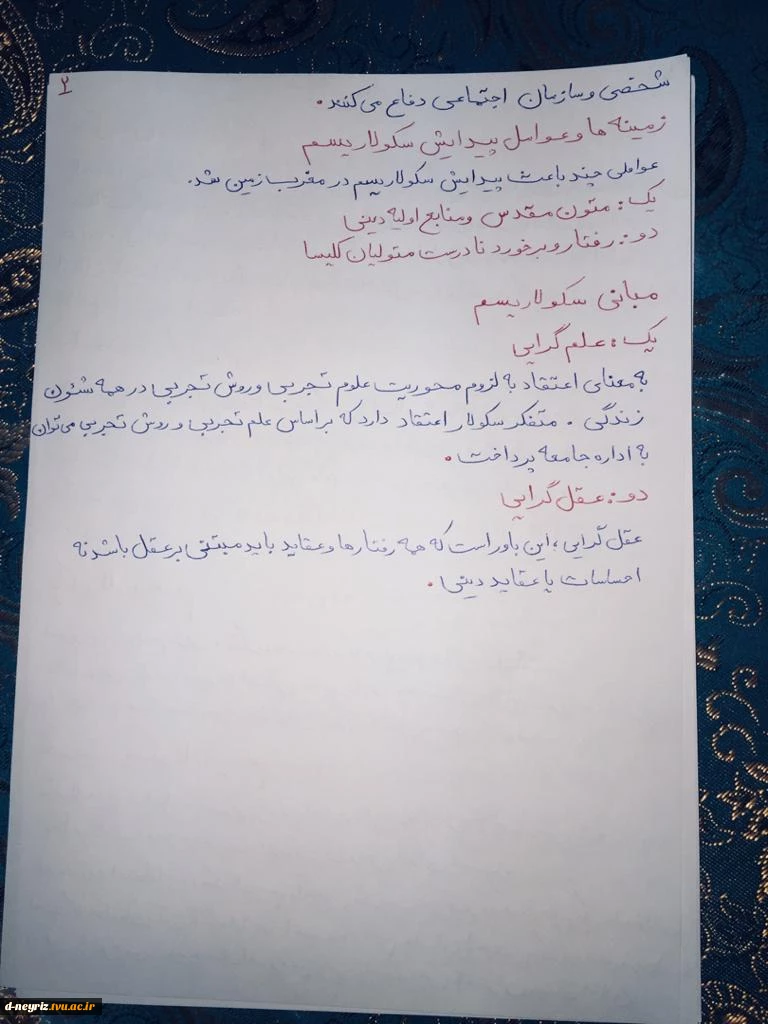 ۲
شخصی و سازمان اجتماعی دفاع می کنند.
زمینه ها و عوامل پیدایش سکولاریسم
عواملی چند باعث پیدایش سکولاریسم در مغرب زمین شد.
یک: متون مقدس و منابع اولیه دینی
دو: رفتار و برخورد نادرست متولیان کلیسا
مبانی سکولاریسم
یک: علم گرایی
به معنای اعتقاد به لزوم محوریت علوم تجربی و روش تجربی در همه شئون
زندگی. متفکر سکولار اعتقاد دارد که بر اساس علم تجربی و روش تجربی می توان
به اداره جامعه پرداخت.
دو: عقل گرایی
عقل گرایی؛ این باور است که همه رفتارها و عقاید باید مبتنی بر عقل باشد نه
احساسات یا عقاید دینی.
d-neyriz.tvu.ac.ir